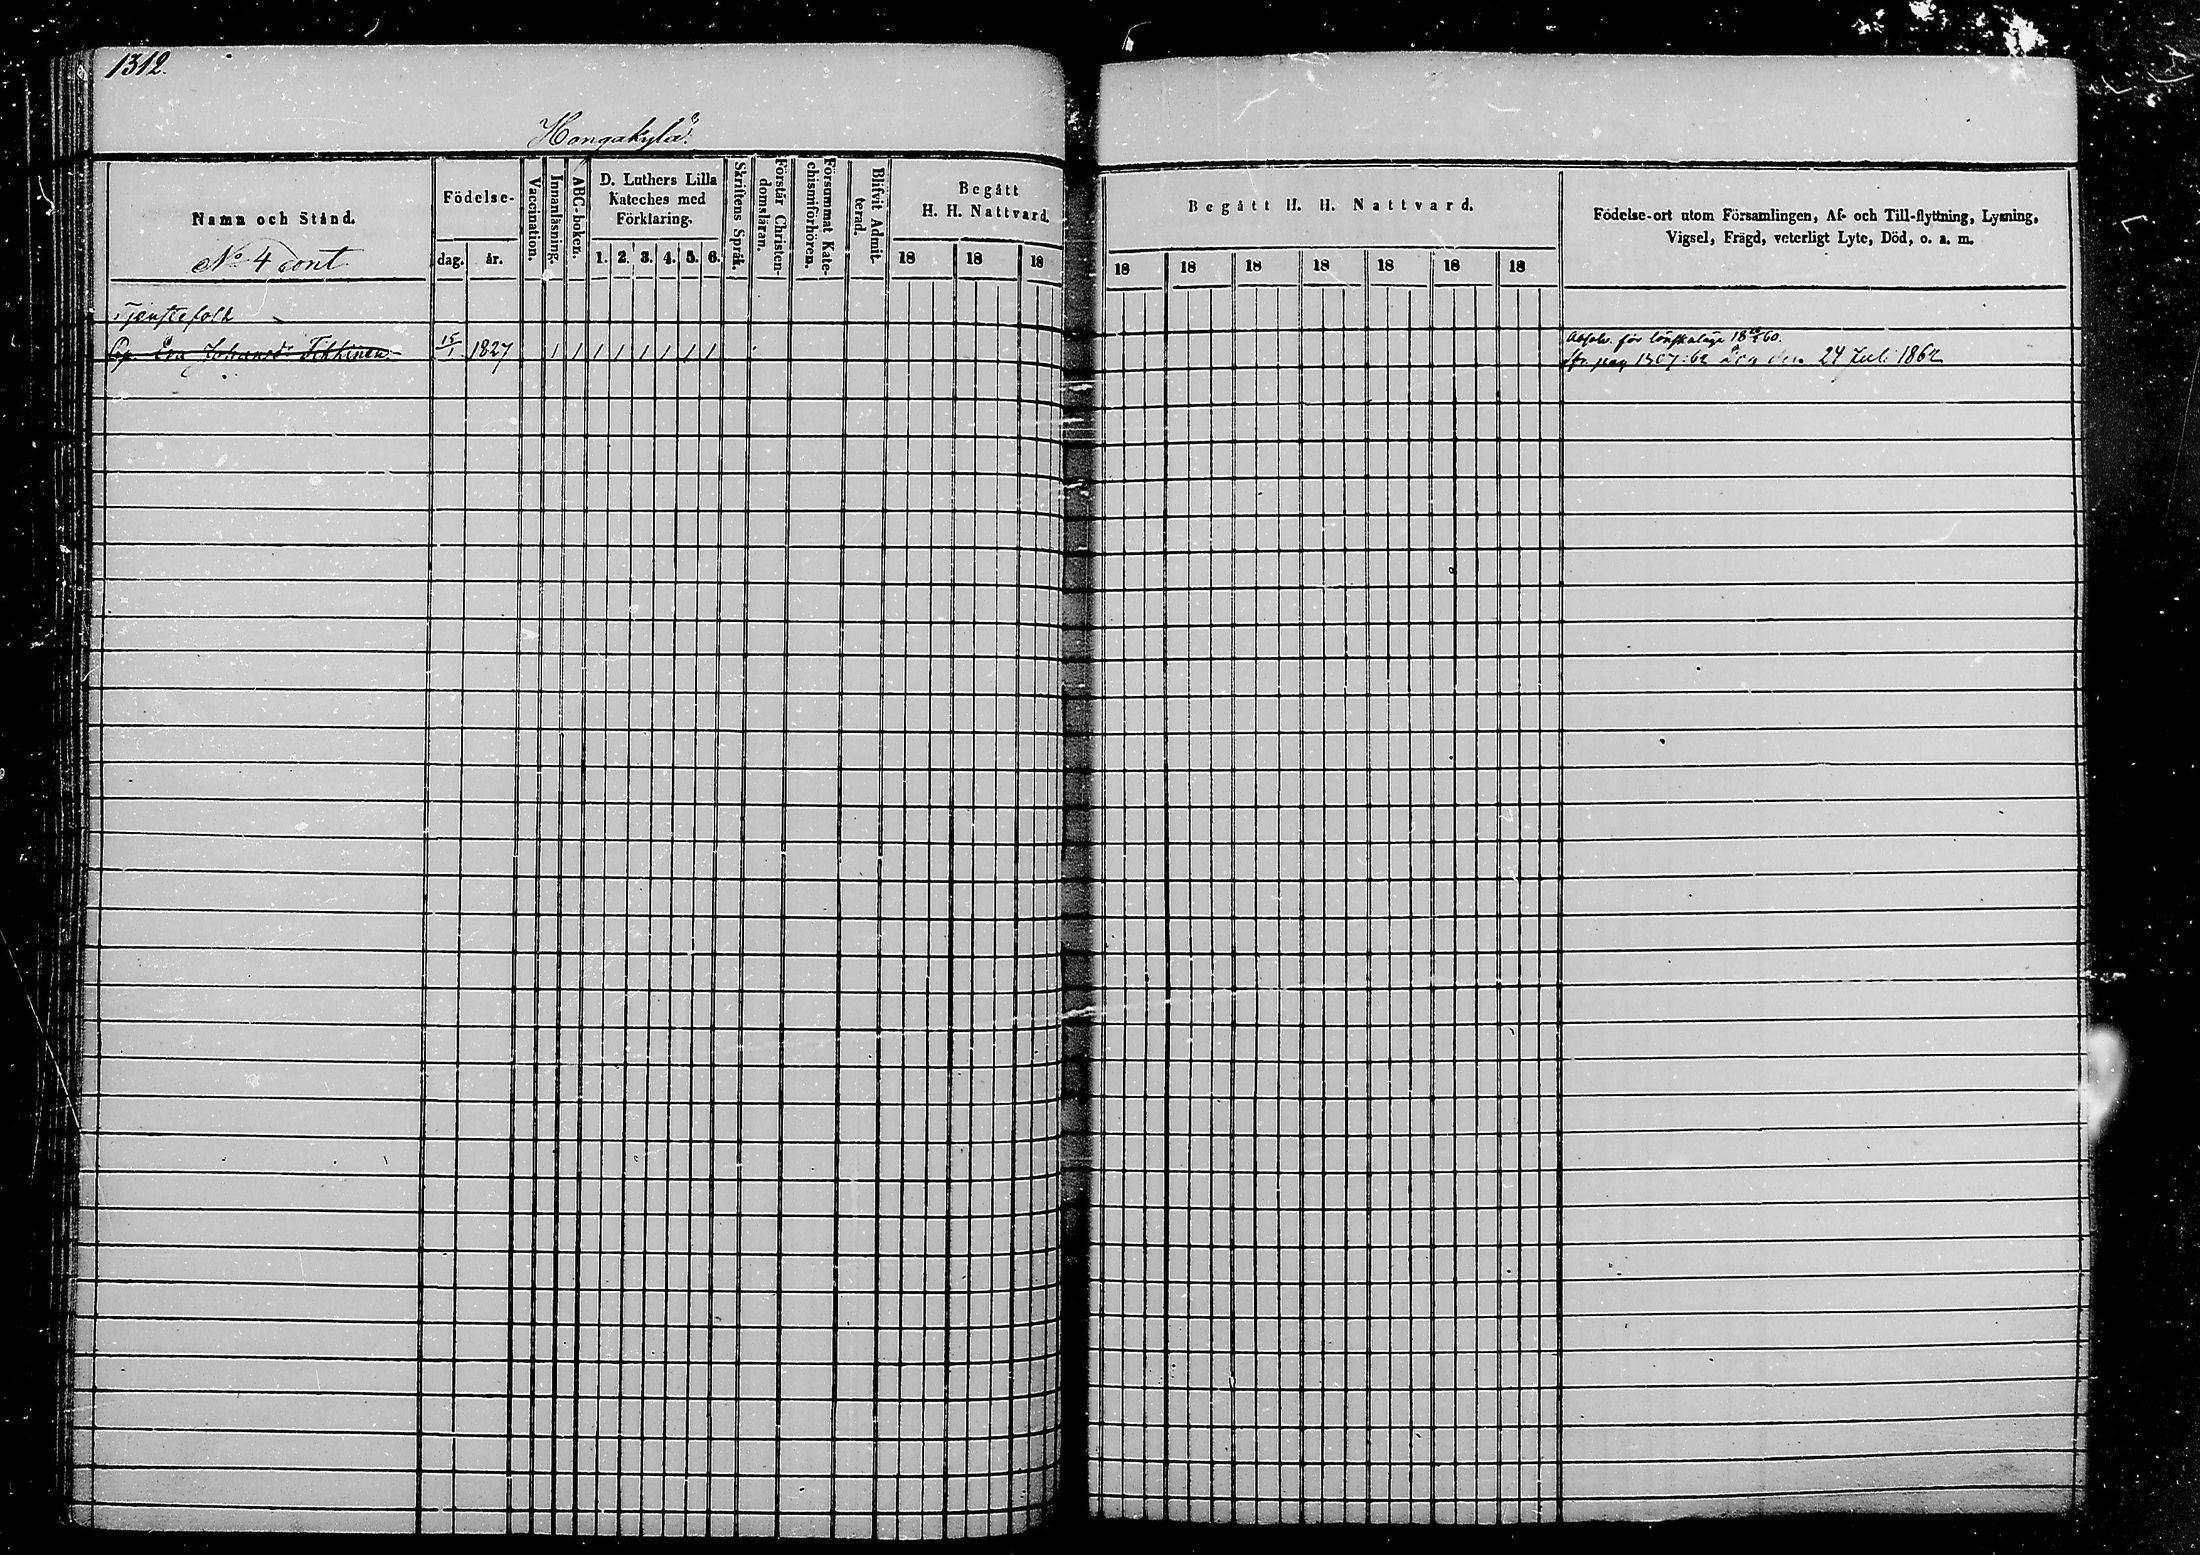 1312.
Hongakylä.
Namn och Stånd.
No 4 Cont.
Födelse-
dag.
år.
Vaccination.
Innanläsning.
ABC-boken.
D. Luthers Lilla
Kateches med
Förklaring.
1. 2. 3. 4. 5. 6.
Skriftens Språk.
Förstår Christen-
domsläran.
Försummat Kate-
chismiförhören.
Blifvit Admit-
terad.
Begått
H. H. Nattvard.
18 18 18
Begått H. H. Nattvard.
18 18 18 18 18 18 18
Födelse-ort utom Församlingen, Af- och Till-flyttning, Lysning,
Vigsel, Frägd, veterligt Lyte, Död, o. a. m.
Tjenstefolk
Eva Johansd: Tikkinen 15/1 1827 1 1 1 1 1 1 1 1
Absolv. för lönskaläge 18 60.
pag 1307:62 den 24 Juli 1862